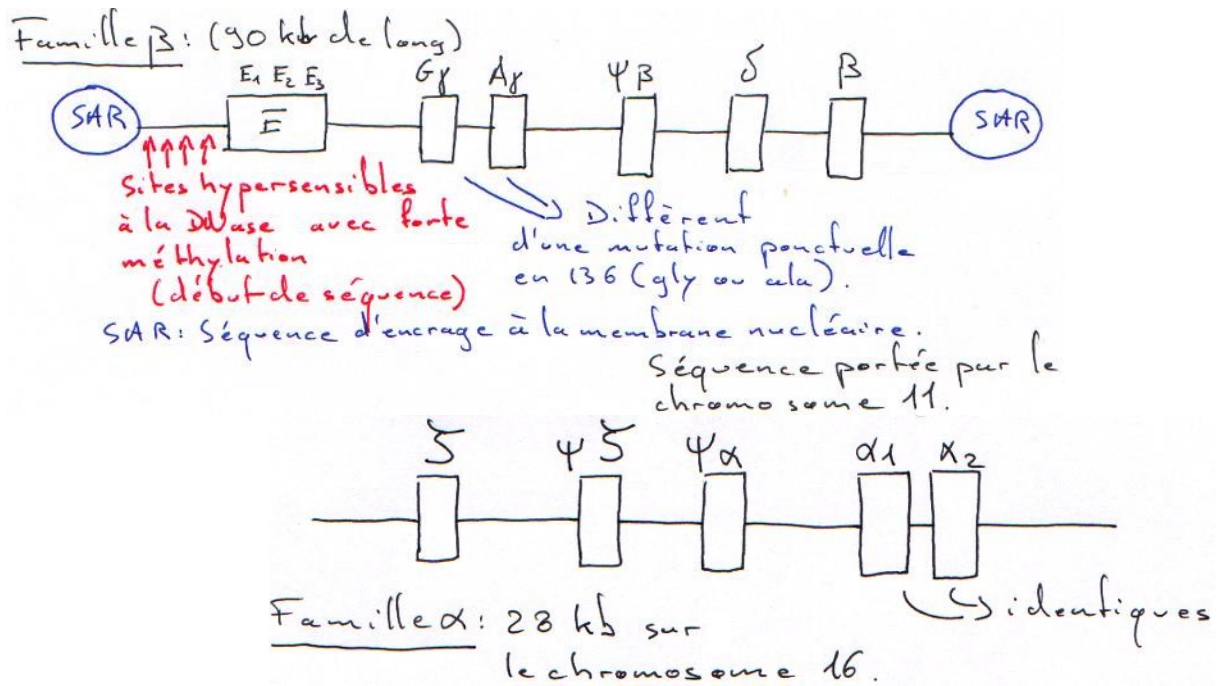 Famille β: (90 kb de long)
E1 E2 E3 Gγ Aγ Ψβ δ β
SAR E SAR
Sites hypersensibles
à la DNase avec forte
méthylation
(début de séquence)
Diffèrent
d'une mutation ponctuelle
en 136 (gly ou ala).
SAR: Séquence d'encrage à la membrane nucléaire.
Séquence portée par le
chromosome 11.
ζ Ψζ Ψα α1 α2
identiques
Famille α: 28 kb sur
le chromosome 16.